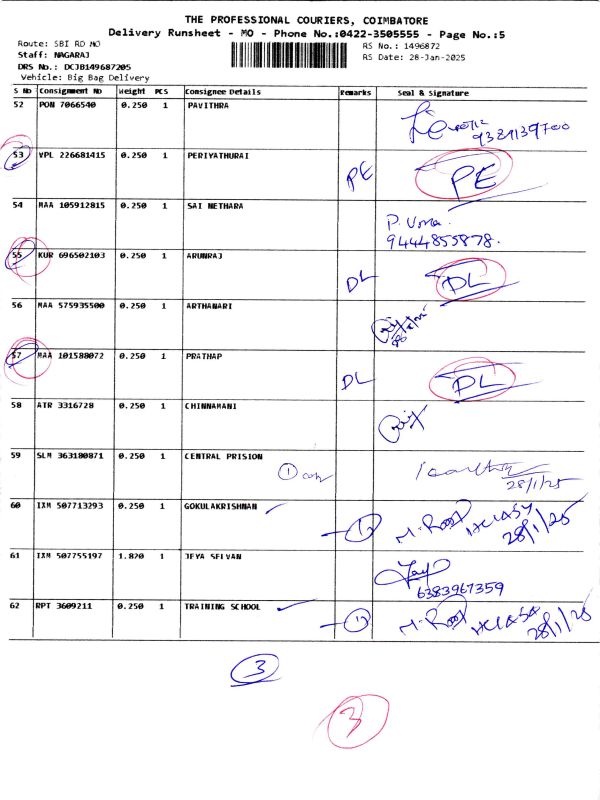 THE PROFESSIONAL COURIERS, COIMBATORE
Delivery Runsheet - MO - Phone No.:0422-3505555 - Page No.:5
Route: SBI RD MO
RS No.: 1496872
Staff: NAGARAJ
RS Date: 28-Jan-2025
DRS No.: DCJB149687205
Vehicle: Big Bag Delivery
S No Consignment No Weight PCS Consignee Details Remarks Seal & Signature
52 PON 7066540 0.250 1 PAVITHRA
9321139700
53 VPL 226681415 0.250 1 PERIYATHURAI PE PE
54 MAA 105912815 0.250 1 SAI METHARA
P. Uma.
9444855878.
55 KUR 696502103 0.250 1 ARUNRAJ DL DL
56 MAA 575935500 0.250 1 ARTHANARI
57 MAA 101588072 0.250 1 PRATHAP DL DL
58 ATR 3316728 0.250 1 CHINNAMANI
59 SLM 363180871 0.250 1 CENTRAL PRISION
1
28/1/25
60 IXM 507713293 0.250 1 GOKULAKRISHNAN 1
28/1/25
61 IXM 507755197 1.820 1 JEYA SELVAN
6383967359
62 RPT 3609211 0.250 1 TRAINING SCHOOL 1
28/1/25
3
3